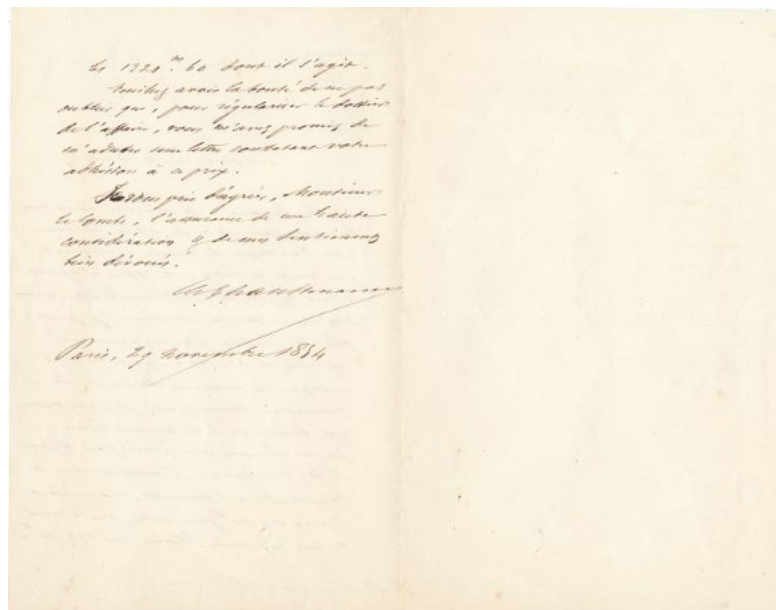 les 1920 m. 60 dont il s'agit.
Veuillez avoir la bonté de ne pas
oublier que, pour régulariser le dossier
de l'affaire, vous m'avez promis de
m'adresser une lettre constatant votre
adhésion à ce prix.
Je vous prie d'agréer, Monsieur
le Comte, l'assurance de ma haute
considération & de mes sentiments
bien dévoués.
G. E. Haussmann
Paris, 29 novembre 1854